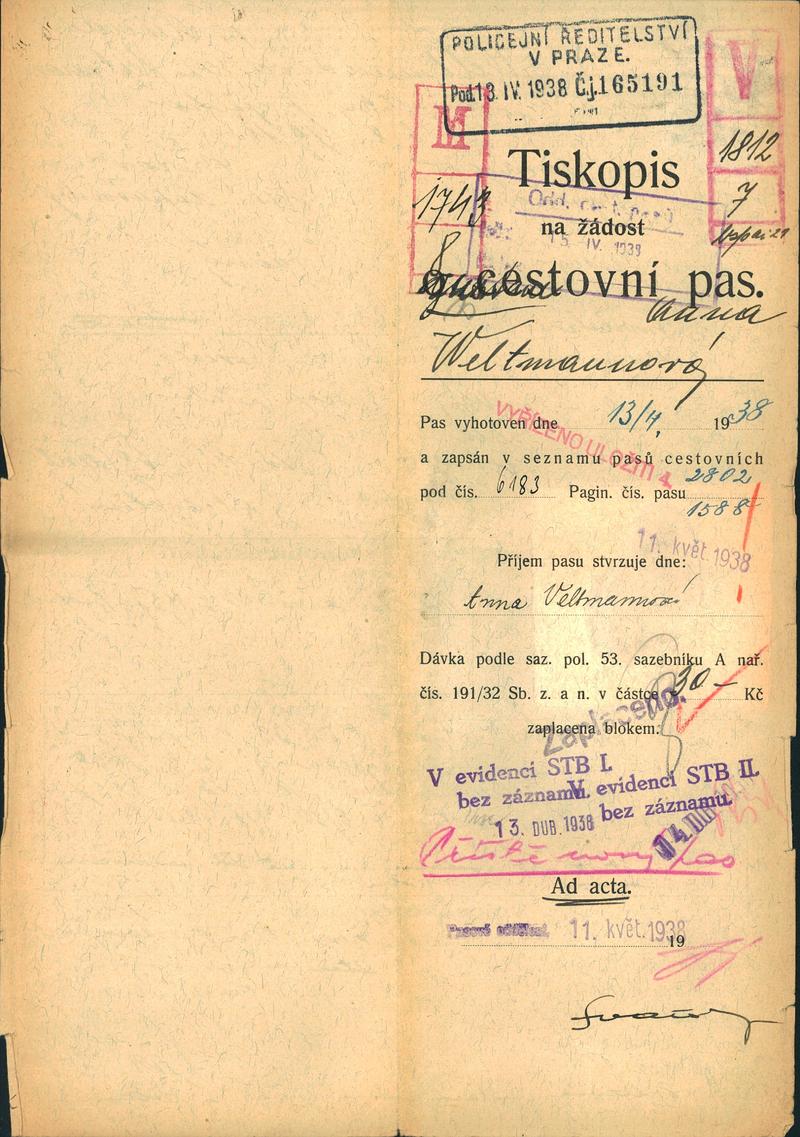 POLICEJNÍ ŘEDITELSTVÍ
V PRAZE.
Pod. 13. IV. 1938 Č.j. 165191
V
III
1812
Tiskopis
1743
7
Odd. cest. pasů
na žádost
13. IV. 1938
o cestovní pas.
Anna
Weltmannová
Pas vyhotoven dne 13/4. 1938
VYŘÍZENO ULOŽIT
a zapsán v seznamu pasů cestovních
pod čís. 6183 Pagin. čís. pasu 2802
1588
11. květ. 1938
Příjem pasu stvrzuje dne:
Anna Veltmannová
Dávka podle saz. pol. 53. sazebníku A nař.
čís. 191/32 Sb. z. a n. v částce 30— Kč
Zaplaceno.
zaplacena blokem:
V evidenci STB I.
bez záznamu.
V evidenci STB II.
bez záznamu.
13. DUB. 1938
14. DUB.
Příště nový pas
Ad acta.
Pasové oddělení, 11. květ. 1938
19